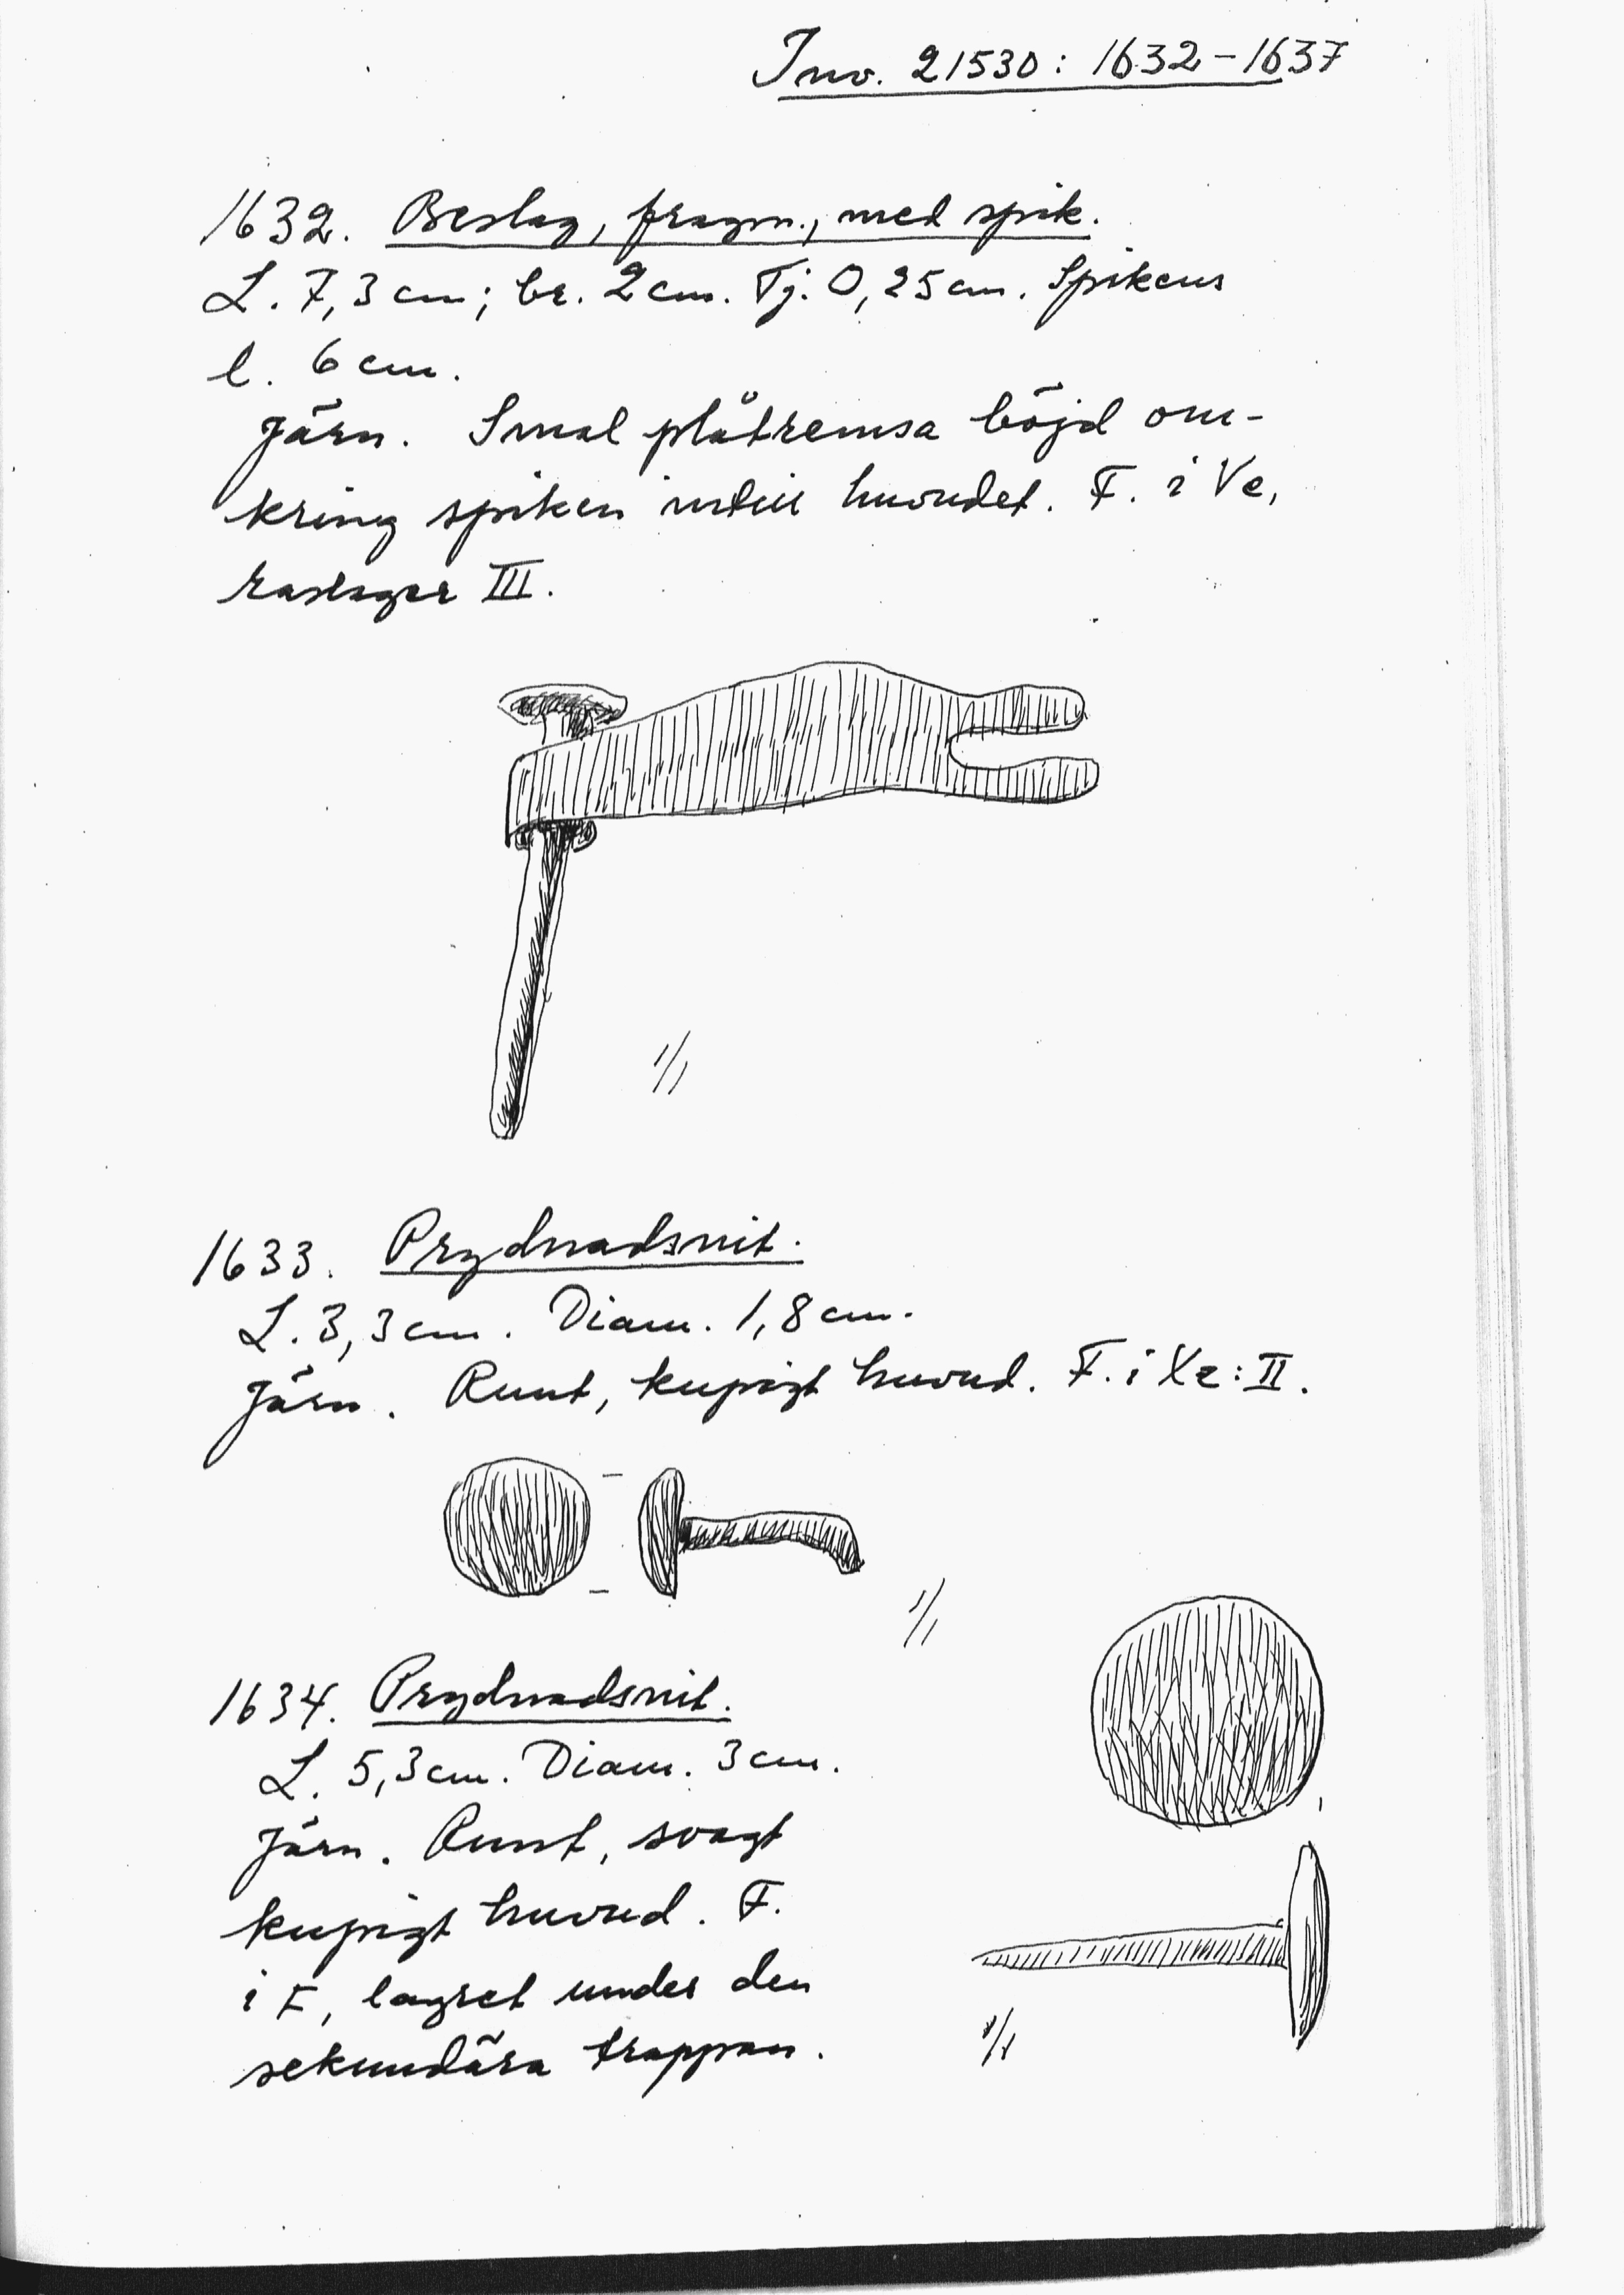 Inv. 21530: 1632-1637
1632. Beslag, fragm., med spik.
L. 7,3 cm; br. 2 cm. Tj. 0,25 cm. Spikens
l. 6 cm.
Järn. Smal plåtremsa böjd om-
kring spiken intill huvudet. F. i Ve,
raslager III.
1/1
1633. Prydnadsnit.
L. 3,3 cm. Diam. 1,8 cm.
Järn. Runt, kupigt huvud. F. i : II.
1/1
1634. Prydnadsnit.
L. 5,3 cm. Diam. 3 cm.
Järn. Runt, svagt
kupigt huvud. F.
i F, lagret under den
sekundära trappan.
1/1